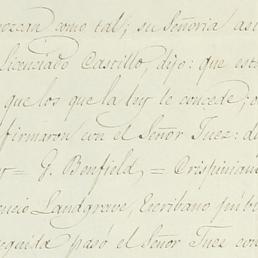 nozcan como tal; su Señoria así
Licenciado Castillo, dijo: que est
que los que la ley le concede; o
firmaron con el Señor Juez: d
= G. Benfield, = Crispinian
Landgrave, Escribano públ
seguida pasó el Señor Juez con